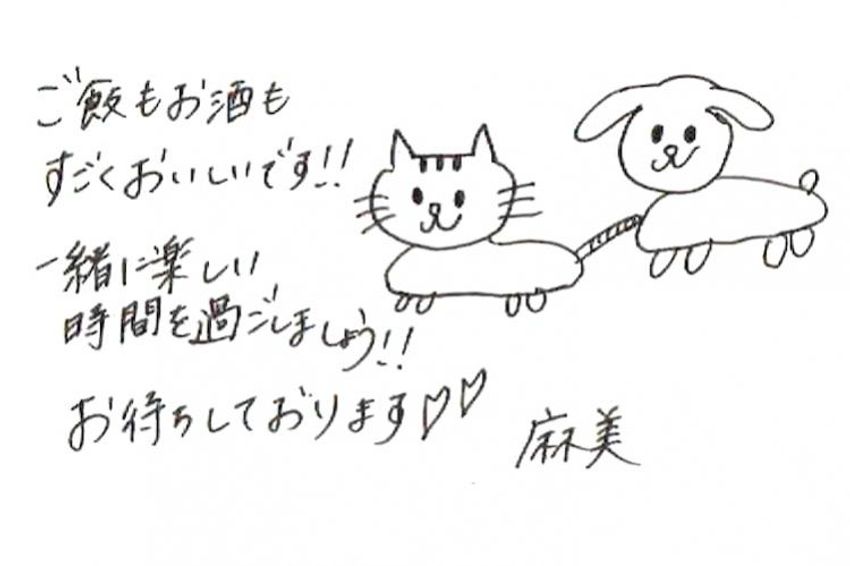 ご飯もお酒も
すごくおいしいです!!
一緒に楽しい
時間を過ごしましょう!!
お待ちしております♡♡
麻美